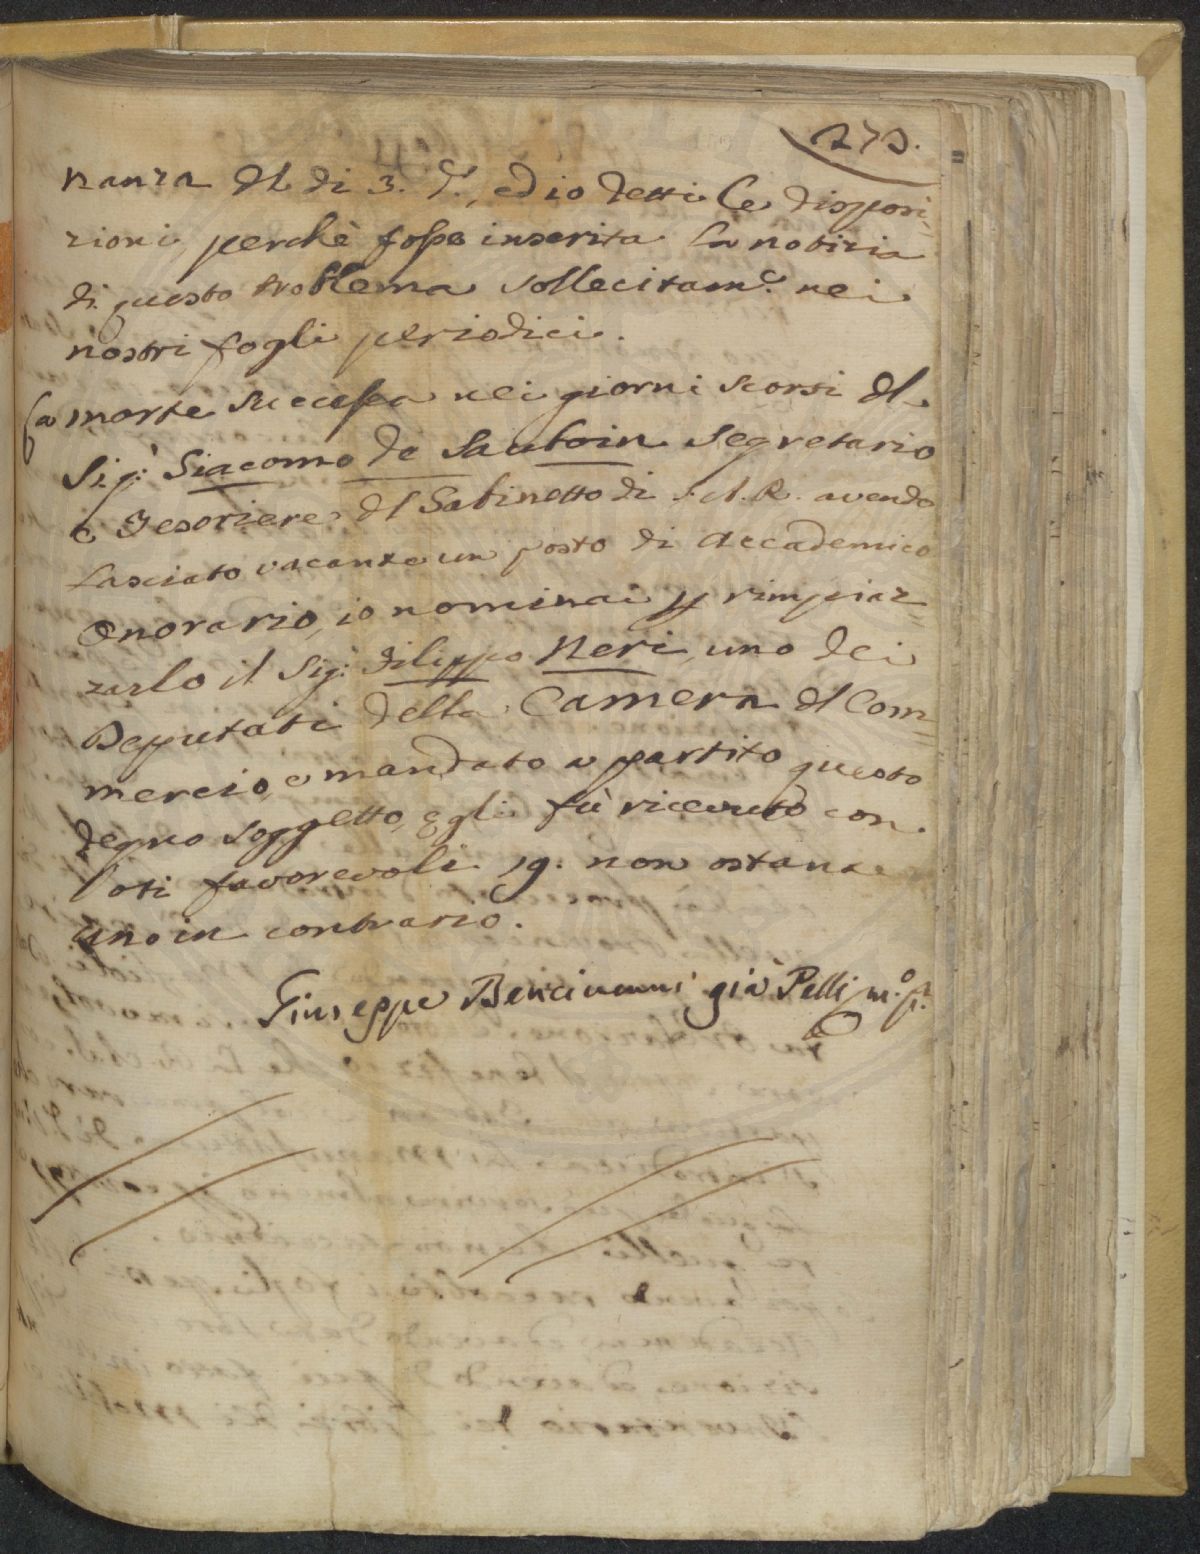 273.
nanza del di 3. d.o, ed io detti le disposi=
zioni, perchè fosse inserita la notizia
di questo Problema sollecitam.e nei
nostri fogli periodici.
La morte successa nei giorni scorsi del
Sig.r Giacomo de Sauboin Segretario
e Tesoriere del Gabinetto di S. A. R. avendo
lasciato vacante un posto di Accademico
Onorario, io nominai p rimpiaz=
zarlo il Sig.r Filippo Neri, uno dei
Deputati della Camera del Com=
mercio, e mandato a partito questo
degno soggetto, egli fù ricevuto con
Voti favorevoli 19. non ostante
uno in contrario.
Giuseppe Bencivenni già Pelli m.o p.a